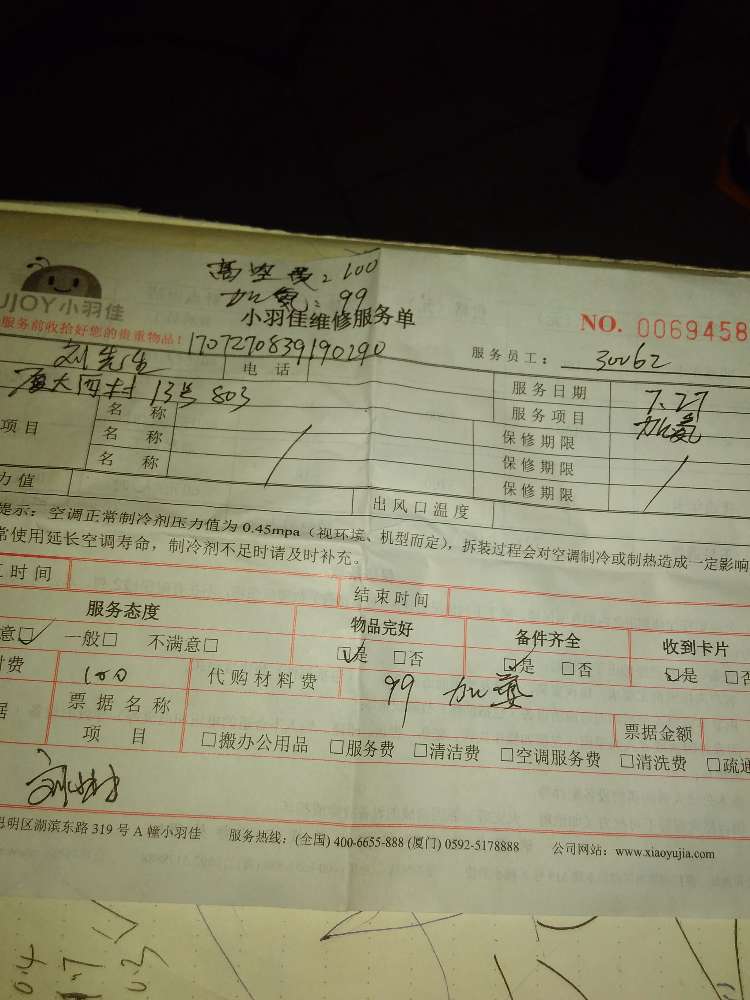 高空费：100
加氟：99
JOY小羽佳
小羽佳维修服务单
NO. 0069458
服务前收拾好您的贵重物品！
刘先生 电话 1707270839190290 服务员工： 30062
厦大西村 13号 803 服务日期 7.27
名称 服务项目 加氟
项目 名称 / 保修期限
名称 保修期限 /
保修期限
力值 出风口温度
提示：空调正常制冷剂压力值为 0.45mpa（视环境、机型而定），拆装过程会对空调制冷或制热造成一定影响
常使用延长空调寿命，制冷剂不足时请及时补充。
时间 结束时间
服务态度 物品完好 备件齐全 收到卡片
意☑ 一般□ 不满意□ ☑是 □否 ☑是 □否 ☑是 □否
费 100 代购材料费 99 加
据 票据名称 票据金额
项目 □搬办公用品 □服务费 □清洁费 □空调服务费 □清洗费 □疏通
思明区湖滨东路 319 号 A 幢小羽佳 服务热线：(全国) 400-6655-888 (厦门) 0592-5178888 公司网站：www.xiaoyujia.com
0.4
1.7
0.3